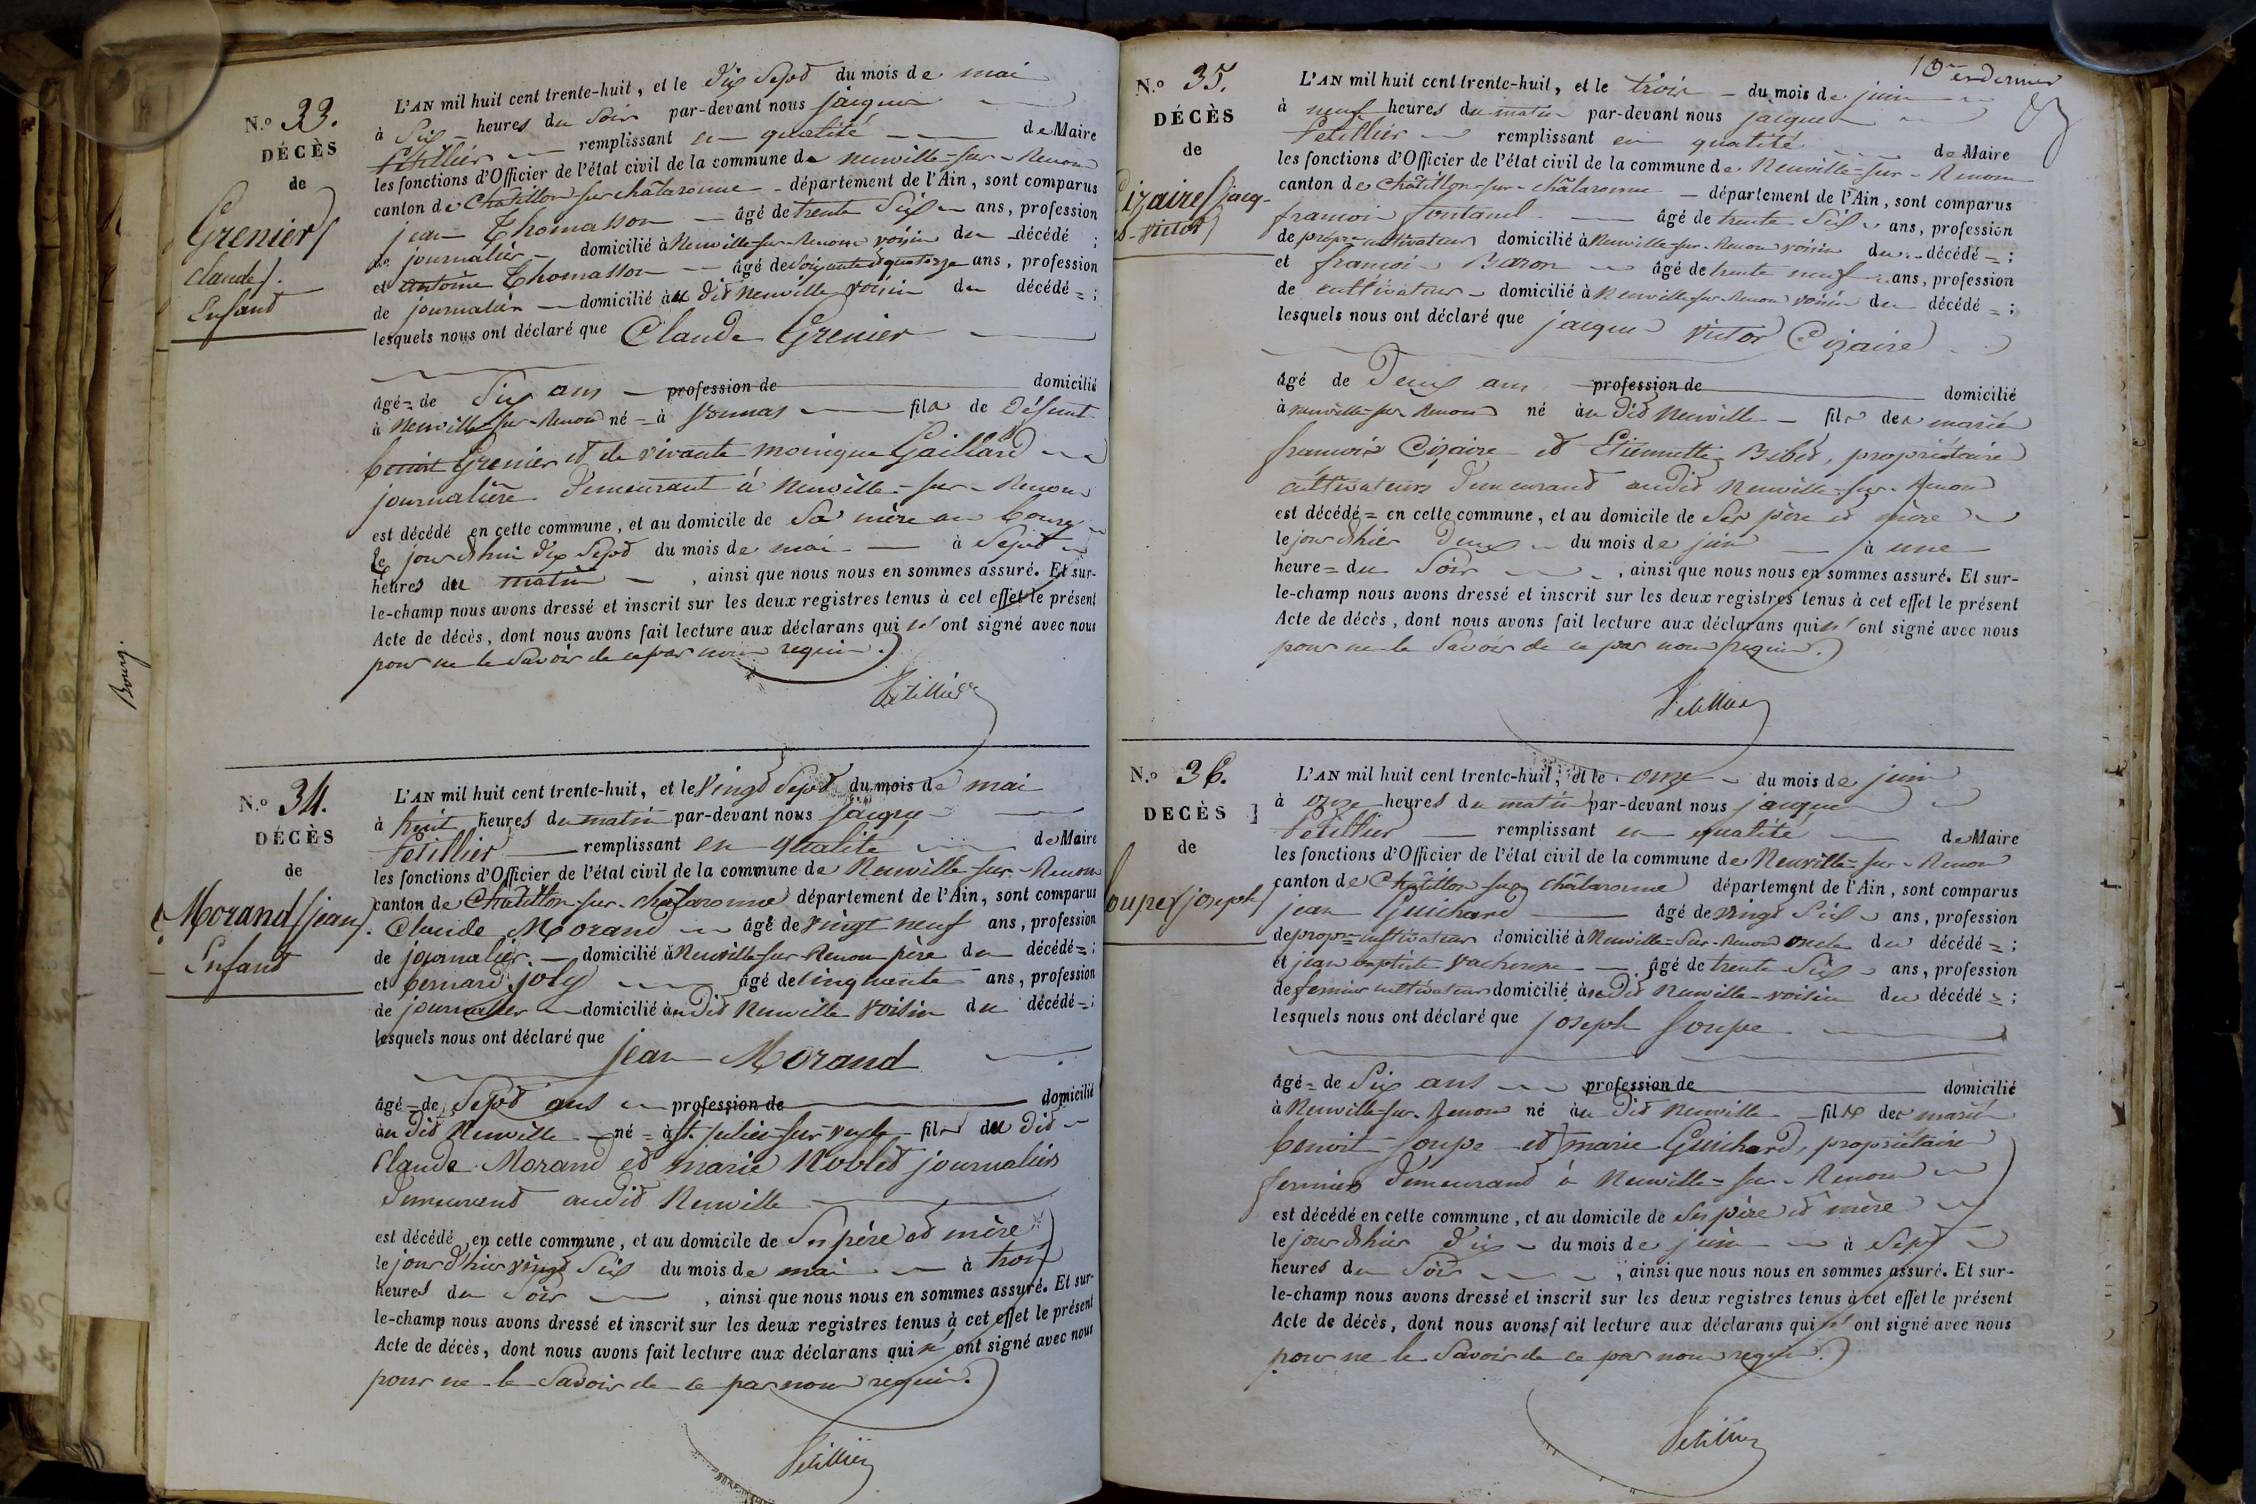 Bourg.
N.º 33.
DÉCÈS
de
Grenier
Claude.
Enfant
L'AN mil huit cent trente-huit, et le dix sept du mois de mai
à six heures du soir par-devant nous jacques
Petillier remplissant en qualité de Maire
les fonctions d'Officier de l'état civil de la commune de neuville-sur-Renom
canton de Chatillon sur châlaronne département de l'Ain, sont comparus
jean Thomasson âgé de trente six ans, profession
de journalier domicilié à Neuville-sur-Renom voisin du décédé ;
et antoine Thomasson âgé de soixante et quatorze ans, profession
de journalier domicilié au dit neuville voisin du décédé = ;
lesquels nous ont déclaré que Claude Grenier
âgé = de six ans profession de domicilié
à Neuville-sur-Renom né = à vonnas fils de défunt
benoit Grenier et de vivante monique Gaillard
journalière demeurant à neuville-sur-Renom
est décédé en cette commune, et au domicile de sa mère au bourg
Le jourdhui dix sept du mois de mai à sept
heures du matin , ainsi que nous nous en sommes assuré. Et sur-
le-champ nous avons dressé et inscrit sur les deux registres tenus à cet effet le présent
Acte de décès, dont nous avons fait lecture aux déclarans qui n' ont signé avec nous
pour ne le savoir de ce par nous requis.
Petillier
N.º 34.
DÉCÈS
de
Morand (jean).
Enfant
L'AN mil huit cent trente-huit, et le vingt sept du mois de mai
à huit heures du matin par-devant nous jacques
Petillier remplissant en qualité de Maire
les fonctions d'Officier de l'état civil de la commune de Neuville-sur-Renom
canton de Chatillon-sur-chalaronne département de l'Ain, sont comparus
Claude Morand âgé de vingt neuf ans, profession
de journalier. domicilié à Neuville-sur-Renom père du décédé = ;
et bernard joly âgé de cinquante ans, profession
de journalier domicilié au dit Neuville voisin du décédé = ;
lesquels nous ont déclaré que
jean Morand
âgé = de sept ans profession de domicilié
au dit Neuville né = à St. julien-sur-veyle fils du dit
Claude Morand et marie Noblet journaliers
demeurant audit Neuville
est décédé en cette commune, et au domicile de ses père et mère
le jour d'hier vingt six du mois de mai à trois
heures du soir , ainsi que nous nous en sommes assuré. Et sur-
le-champ nous avons dressé et inscrit sur les deux registres tenus à cet effet le présent
Acte de décès, dont nous avons fait lecture aux déclarans qui n' ont signé avec nous
pour ne le savoir de ce par nous requis.
Petillier
N.º 35.
DÉCÈS
de
Cizaire (jacq-
victor)
L'AN mil huit cent trente-huit, et le trois du mois de juin
à neuf heures du matin par-devant nous jacques
Petillier remplissant en qualité de Maire
les fonctions d'Officier de l'état civil de la commune de Neuville-sur-Renom
canton de Châtillon-sur-châlaronne département de l'Ain, sont comparus
francois fontanel âgé de trente six ans, profession
de propre cultivateur domicilié à Neuville-sur-Renom voisin du décédé = ;
et francois Baron âgé de trente neuf ans, profession
de cultivateur domicilié à Neuville-sur-Renom voisin du décédé = ;
lesquels nous ont déclaré que jacques victor Cizaire
âgé de deux ans profession de domicilié
à neuville-sur-Renom né au dit Neuville fils des mariés
francois Cizaire et Etiennette Bibet, propriétaire
cultivateurs demeurant audit Neuville-sur-Renom
est décédé = en cette commune, et au domicile de ses père et mère
le jour d'hier deux du mois de juin à une
heure = du soir , ainsi que nous nous en sommes assuré. Et sur-
le-champ nous avons dressé et inscrit sur les deux registres tenus à cet effet le présent
Acte de décès, dont nous avons fait lecture aux déclarans qui n' ont signé avec nous
pour ne le savoir de ce par nous requis.
Petillier
N.º 36.
DECÈS
de
Soupe (joseph)
L'AN mil huit cent trente-huit, et le onze du mois de juin
à onze heures du matin par-devant nous jacques
Petillier remplissant en qualité de Maire
les fonctions d'Officier de l'état civil de la commune de Neuville-sur-Renom
canton de Châtillon sur châlaronne département de l'Ain, sont comparus
jean Guichard âgé de vingt six ans, profession
de propre cultivateur domicilié à Neuville-sur-Renom oncle du décédé = ;
et jean baptiste vacheresse âgé de trente six ans, profession
de fermier cultivateur domicilié au dit Neuville voisin du décédé = ;
lesquels nous ont déclaré que joseph Soupe
âgé = de six ans profession de domicilié
à Neuville-sur-Renom né au dit Neuville fils des mariés
benoit Soupe et marie Guichard, propriétaire
fermiers demeurant à Neuville-sur-Renom
est décédé en cette commune, et au domicile de ses père et mère
le jour d'hier dix du mois de juin à sept
heures du soir , ainsi que nous nous en sommes assuré. Et sur-
le-champ nous avons dressé et inscrit sur les deux registres tenus à cet effet le présent
Acte de décès, dont nous avons fait lecture aux déclarans qui n' ont signé avec nous
pour ne le savoir de ce par nous requis.
Petillier